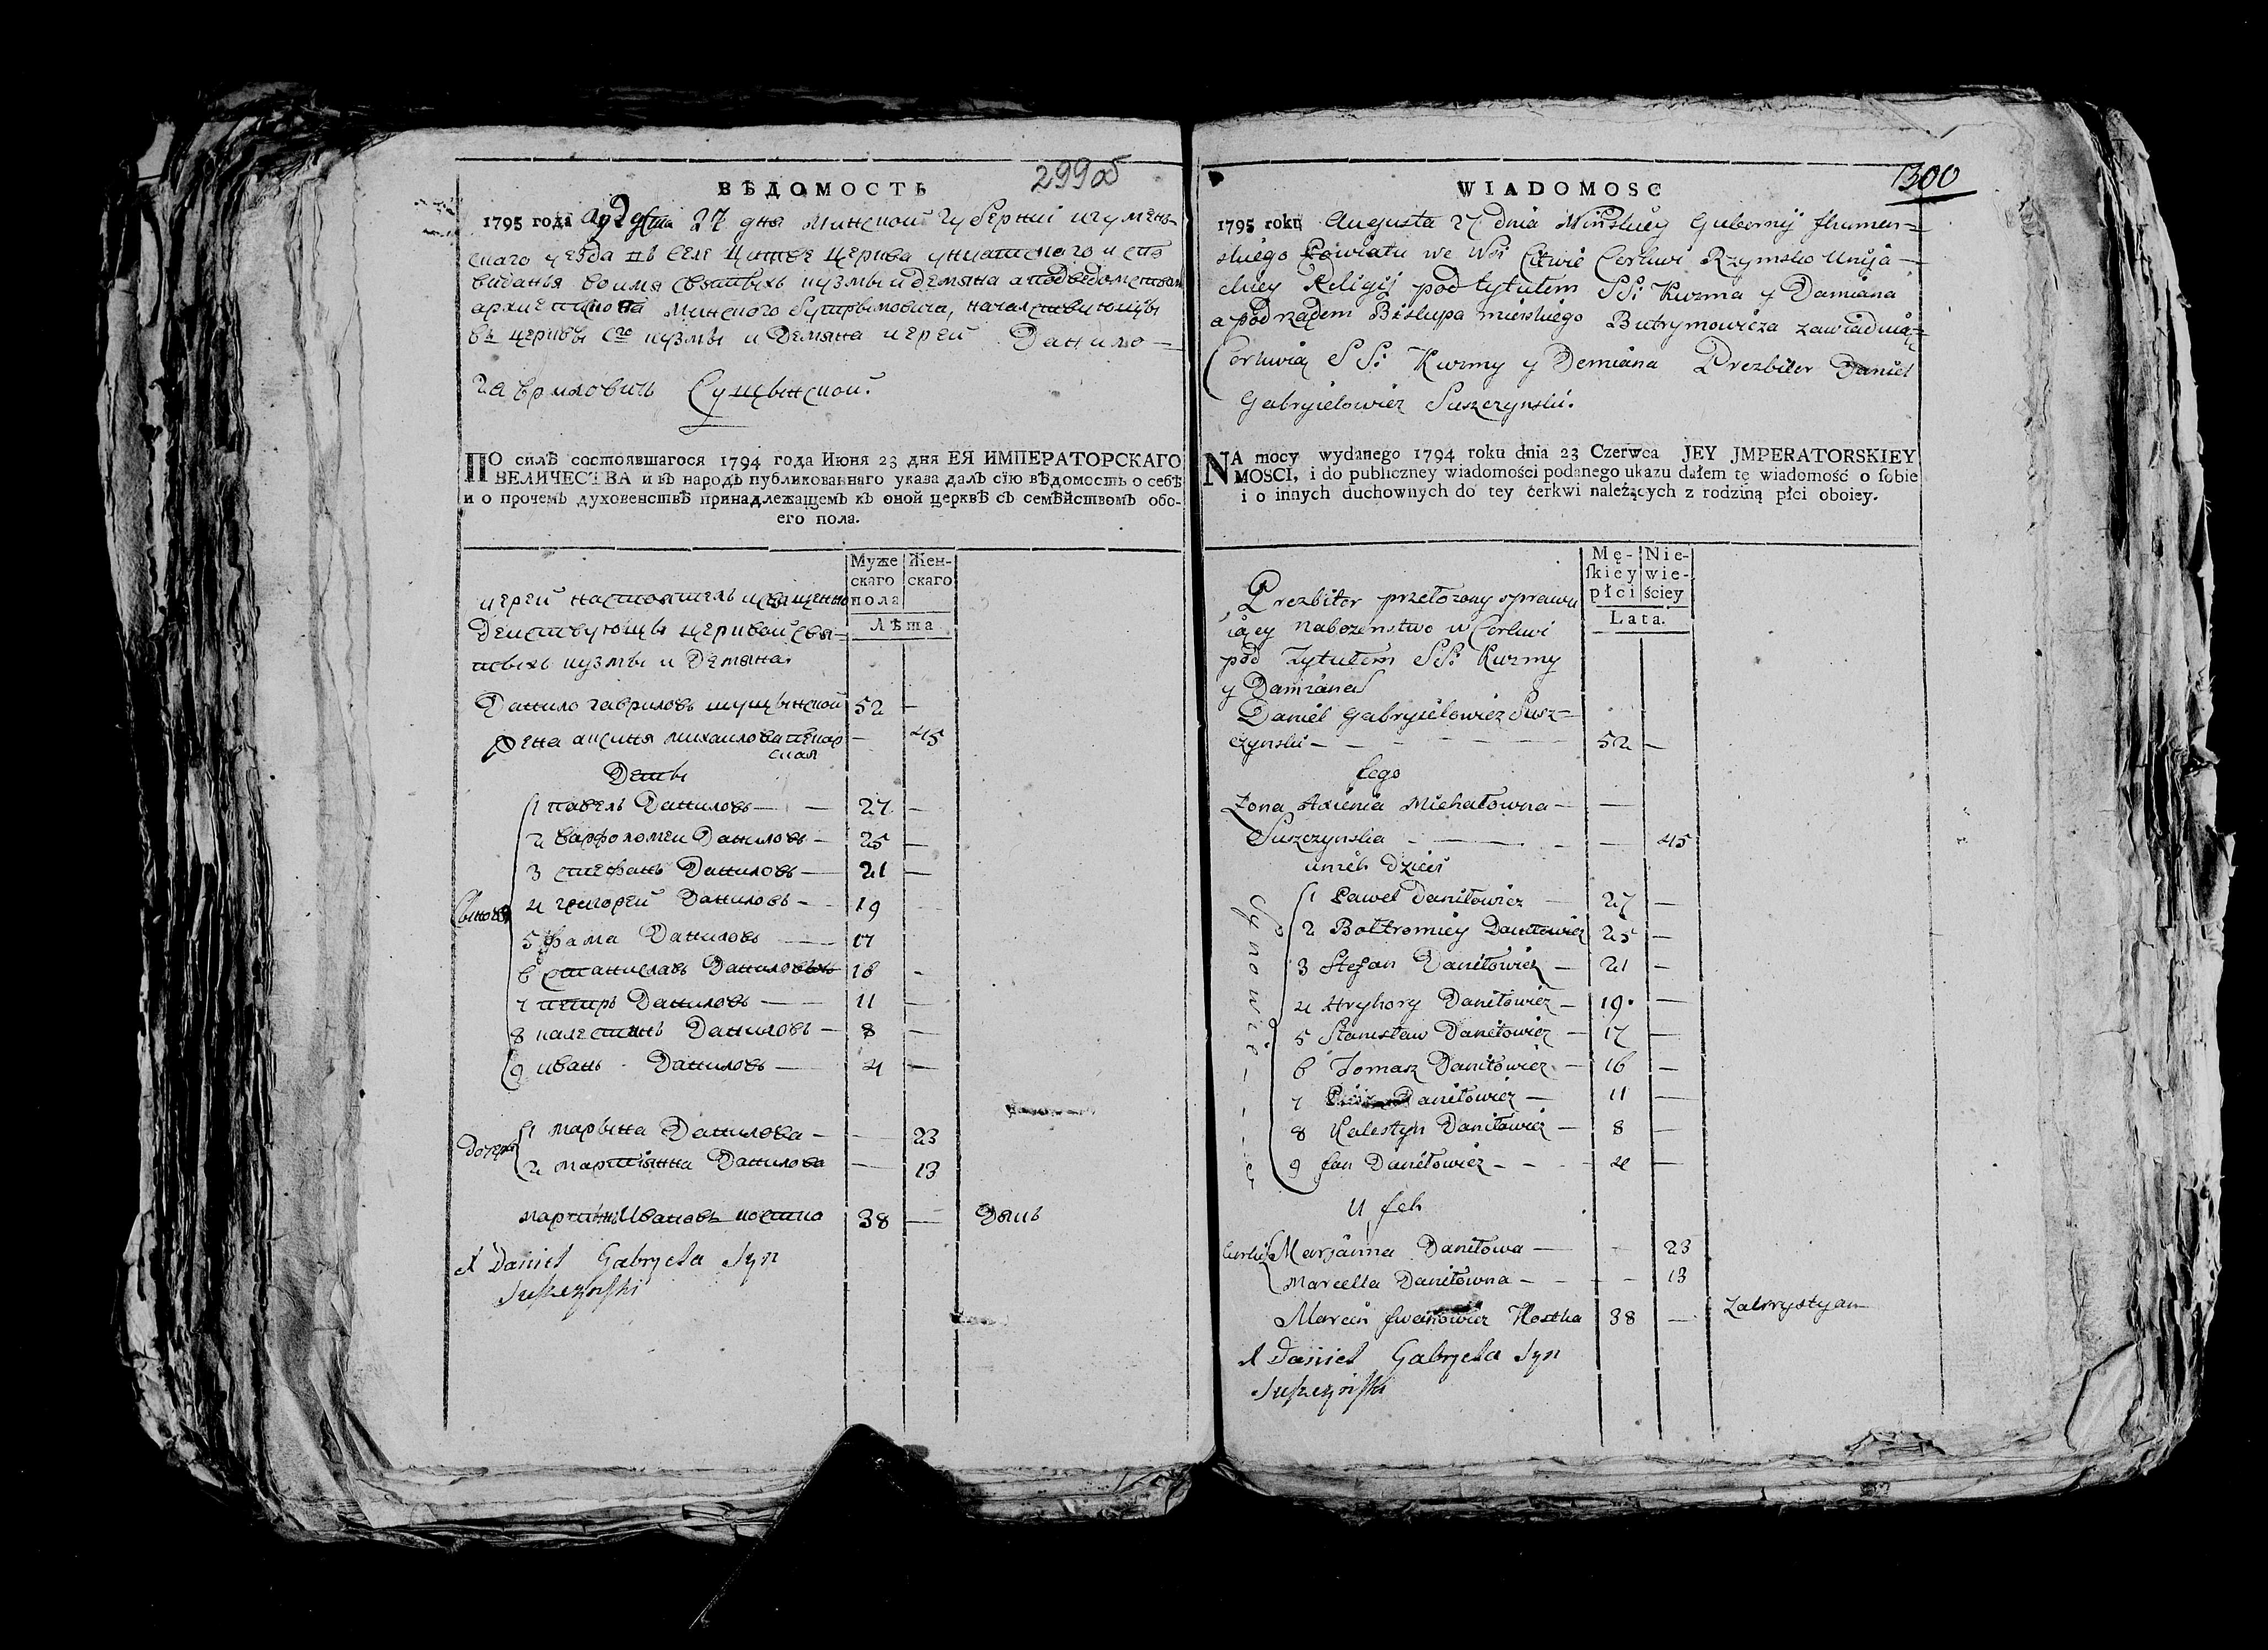 299об
ВѢДОМОСТЬ
1795 года Августа 27 дня Минской губерніи игумен-
скаго уезда въ селе Цитве церква униатского испо
виданья во имя святыхъ кузмы и демяна а под ведомством
Минского Бутрымовича, началствующы
въ церквы сто кузмы и Демяна иерей Данило
гавриловичь Сущынской.
ПО силѣ состоявшагося 1794 года Июня 23 дня ЕЯ ИМПЕРАТОРСКАГО
ВЕЛИЧЕСТВА и въ народъ публикованнаго указа далъ сїю вѣдомость о себѣ
и о прочемъ духовенствѣ принадлежащемъ къ оной церквѣ съ семѣйствомъ обо-
его пола.
Муже скаго пола Жен- скаго
Лѣта
иерей настоятель и священно
Деиствующы церквой свя-
тыхъ кузмы и Демяна
Данило гавриловъ шущынской 52 —
жена аксиня михаилова — 45
Деты
Сыновя
1 павелъ Даниловъ — 27 —
2 варфоломеи Даниловъ — 25 —
3 стефанъ Даниловъ — 21 —
4 григорей Даниловъ — 19 —
5 фама Даниловъ — 17
6 станиславъ Даниловъ 16 —
7 петръ Даниловъ — 11 —
8 калестынъ Даниловъ — 8 —
9 иванъ Даниловъ — 4 —
Дочери
1 марьяна Данилова — — 23
2 Данилова — 13
мартынъ Ивановъ костка 38 — Дякъ
A Daniel Gabryela Syn
Suszczynski
1300
WIADOMOSC
1795 roku Augusta 27 dnia Mińskiey Gubernij Ihumen=
skiego Powiatu we Wsi Citwie Cerkwi Rzymsko Unija
ckiey Religij pod tytułem SS: Kuzma y Damiana
a pod rządem Biskupa minskiego Butrymowicza zawiadu-
Cerkwią SS: Kuzmy y Demiana Prezbiter Daniel
Gabryielowicz Suszczynski.
NA mocy wydanego 1794 roku dnia 23 Czerwca JEY JMPERATORSKIEY
MOSCI, i do publiczney wiadomości podanego ukazu dałem tę wiadomość o sobie
i o innych duchownych do tey cerkwi należących z rodziną płci oboiey.
Mę- skiey płci Nie- wie- ściey
Lata.
Prezbiter przełozony sprawu
iący Nabozenstwo w Cerkwi
pod Tytułem SS: Kuzmy
y Damiana
Daniel Gabryielowicz Susz=
czynski — 52 —
Iego
Zona Axienia Michałowna —
Suszczynska — 45
unich Dzieci
Synowie
1 Paweł Daniłowicz 27 —
2 Bołtromiey Daniłowicz 25 —
3 Stefan Daniłowicz — 21 —
4 Hryhory Daniłowicz — 19. —
5 Stanisław Daniłowicz — 17 —
6 Tomasz Daniłowicz — 16 —
7 Daniłowicz — 11 —
8 Kalestyn Daniłowicz — 8 —
9 Jan Daniłowicz — 4 —
U Ich
Curki
Maryanna Daniłowa — 23
Marcella Daniłowna — — 13
Marcin Iwanowicz Kostka 38 — Zakrystyan
A Daniel Gabryela Syn
Suszczynski